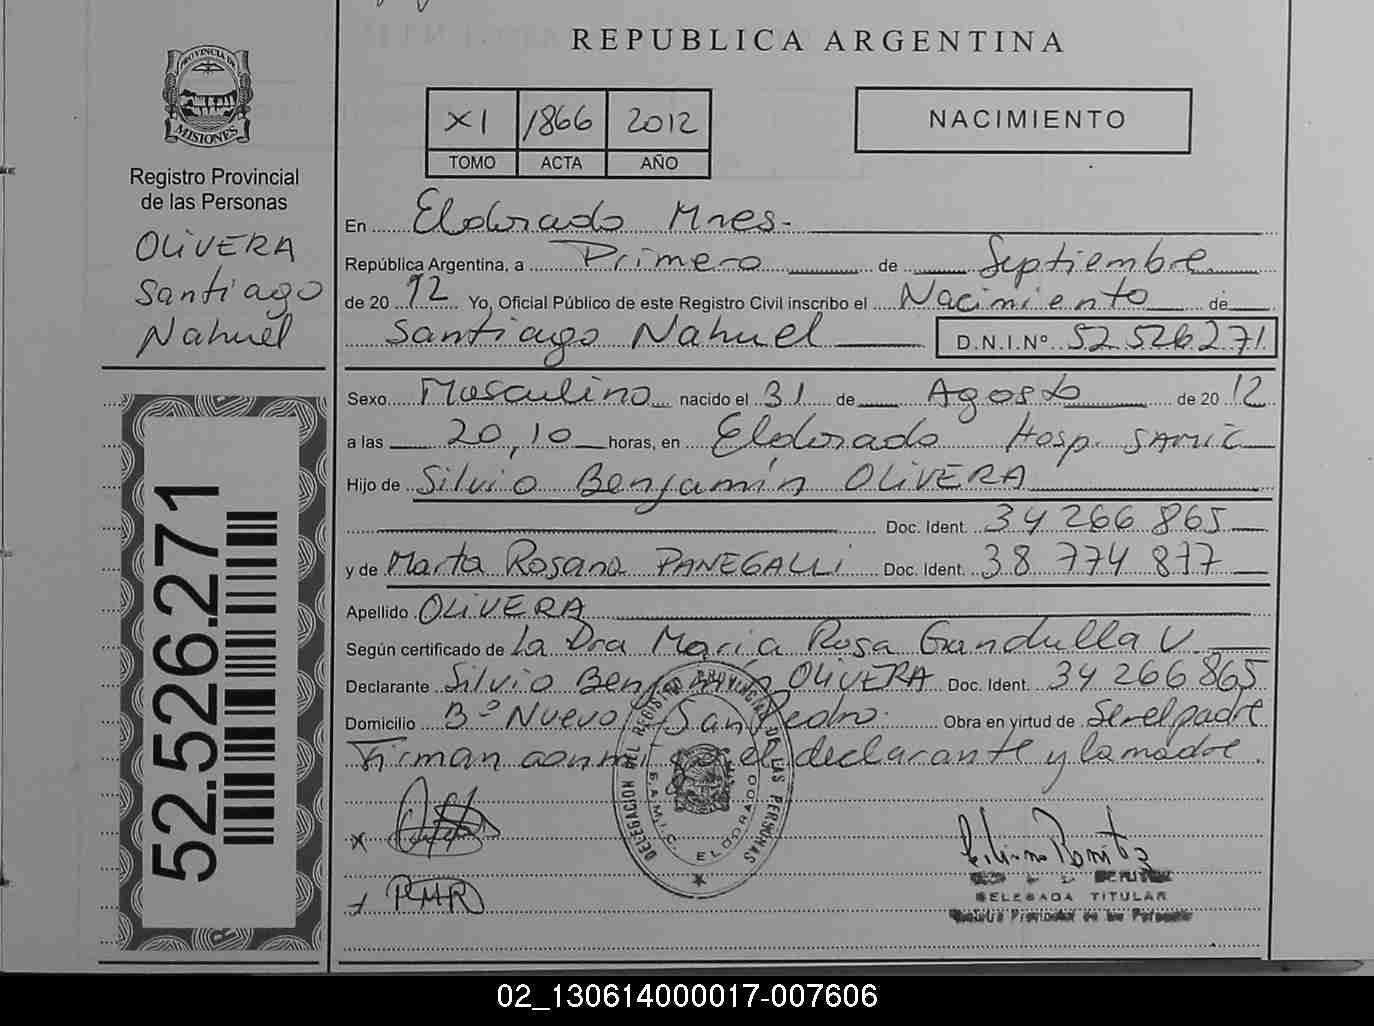 REPUBLICA ARGENTINA
PROVINCIA DE
MISIONES
Registro Provincial
de las Personas
OLIVERA
Santiago
Nahuel
52.526.271
XI 1866 2012
TOMO ACTA AÑO
NACIMIENTO
En Eldorado Mnes.
República Argentina, a Primero de Septiembre
de 20 12 Yo, Oficial Público de este Registro Civil inscribo el Nacimiento de
Santiago Nahuel D.N.I.Nº 52 526 271
Sexo Masculino nacido el 31 de Agosto de 20 12
a las 20,10 horas, en Eldorado Hosp. SAMIC
Hijo de Silvio Benjamín OLIVERA
Doc. Ident. 34 266 865
y de Marta Rosana PANEGALLI Doc. Ident. 38 774 877
Apellido OLIVERA
Según certificado de La Dra María Rosa Gandulla V
Declarante Silvio Benjamín OLIVERA Doc. Ident. 34 266 865
Domicilio Bº Nuevo San Pedro. Obra en virtud de Ser el padre
Firman conmigo el declarante y la madre.
DELEGACION DEL REGISTRO PROVINCIAL DE LAS PERSONAS
S.A.M.I.C. ELDORADO
PMR
DELEGADA TITULAR
Registro Provincial de las Personas
02_130614000017-007606